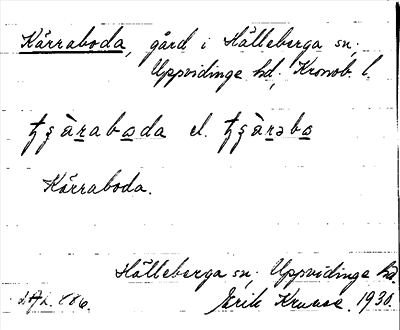 Kärraboda, gård i Hälleberga sn,
Uppvidinge hd, Kronob. l.
ʈʂàraboda el. ʈʂàrəbo
Kärraboda.
Hälleberga sn, Uppvidinge hd.
Erik 1930.